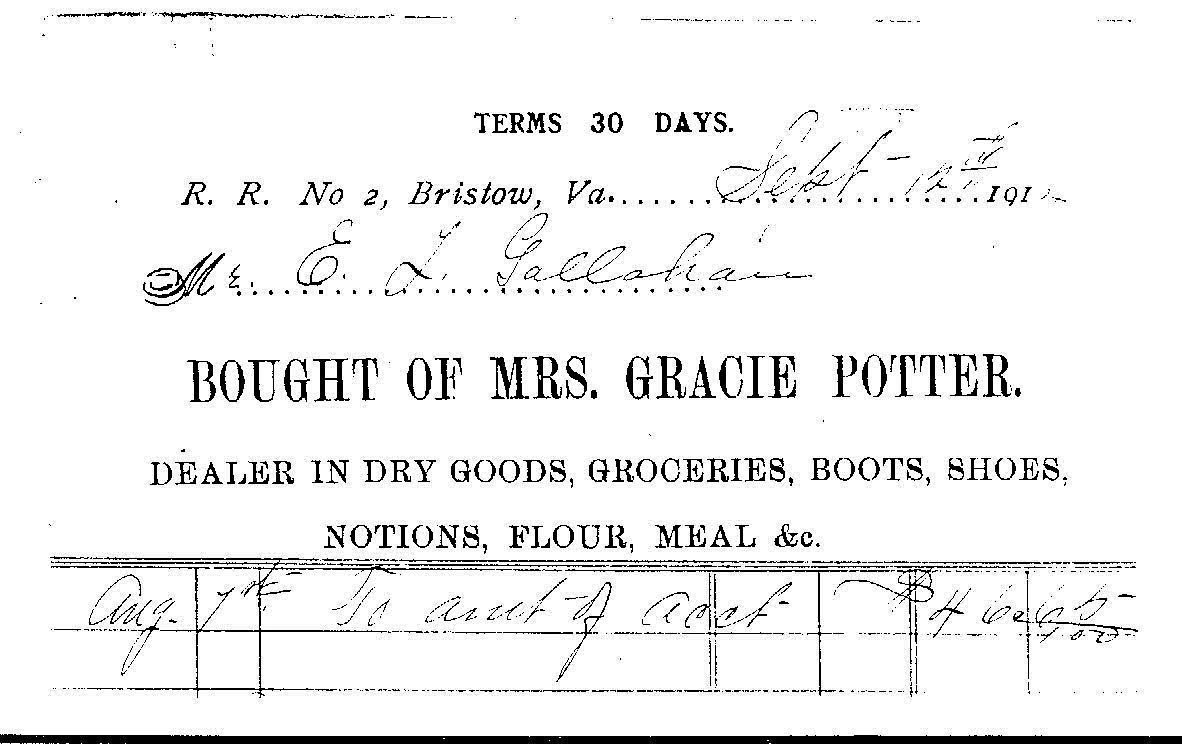 TERMS 30 DAYS.
R. R. No 2, Bristow, Va. Sept 12th 191
Mr. E. L. Gallahan
BOUGHT OF MRS. GRACIE POTTER.
DEALER IN DRY GOODS, GROCERIES, BOOTS, SHOES,
NOTIONS, FLOUR, MEAL &c.
Aug. 7th To amt of acct $46 65/100